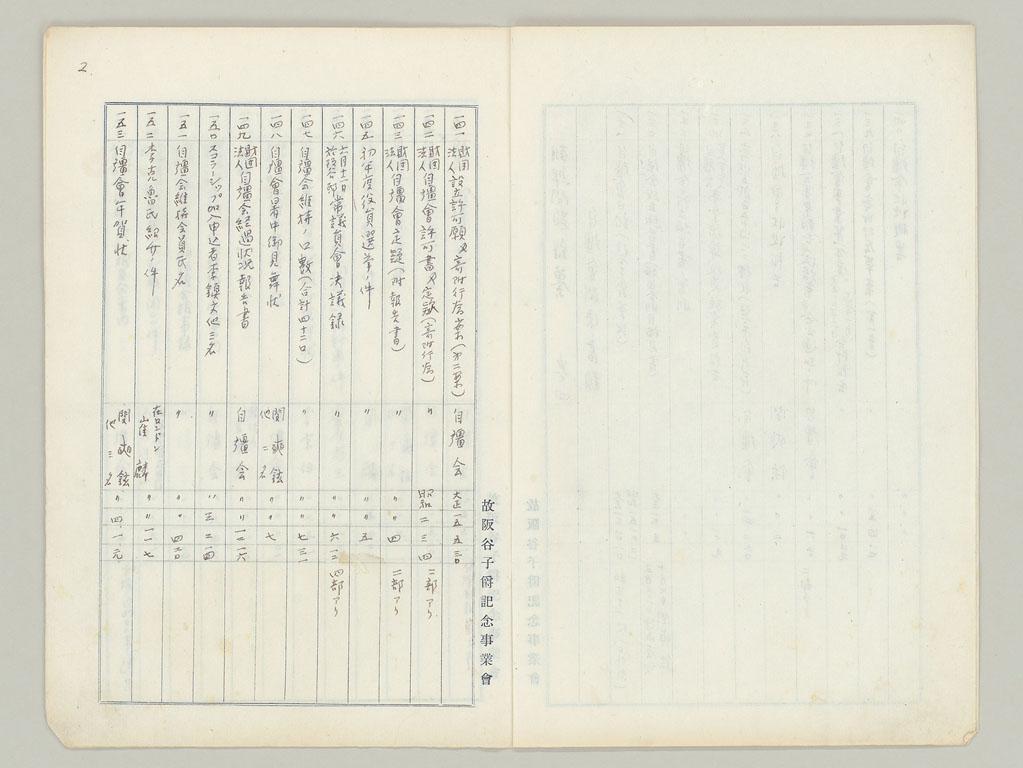 2
一四一 財団法人設立許可願及寄附行為案(第二案) 自彊会 大正一五 五 三〇
一四二 財団法人自彊會許可書及定款(寄附行為) 〃 昭和二 三 四 二部アリ
一四三 財団法人自彊會定款(附報告書) 〃 〃 〃 四 二部アリ
一四五 初年度役員選挙ノ件 〃 〃 〃 五
一四六 六月十二日 常議員會決議録 〃 〃 〃 六 一二 四部アリ
一四七 自彊会維持ノ口数(合計四十二口) 〃 〃 〃 七 三一
一四八 自彊會暑中御見舞状 閔 鉉 他二名 〃 〃 七
一四九 財団法人自彊会経過状況報告書 自彊会 〃 〃 一二 一六
一五〇 スコラーシップ加入申込者李鎮 他三名 〃 〃 三 二 四
一五一 自彊会維持会員氏名 〃 〃 〃 四 二〇
一五二 李克魯氏紹介ノ件 在ロンドン 山崎 麟 〃 〃 一一 七
一五三 自彊會年賀状 閔 鉉 他三名 〃 四 一 元
故阪谷子爵記念事業會